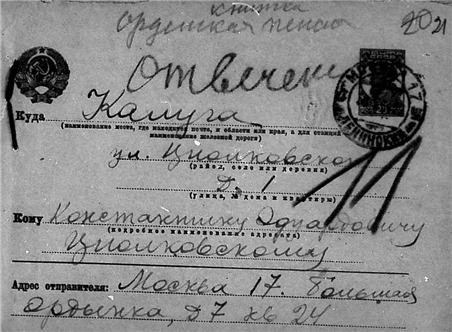 книжка
орденская пенсия
2021
Отвечено
Куда Калуга
(наименование места, где находится почта, и области или края, а для станций
наименование железной дороги)
ул. Циолковского
(район, село или деревня)
д. 1
(улица, № дома и квартиры)
11
Кому Константину Эдуардовичу
(подробное наименование адресата)
Циолковскому
Адрес отправителя: Москва 17. Большая
Ордынка, д 7 кв 24